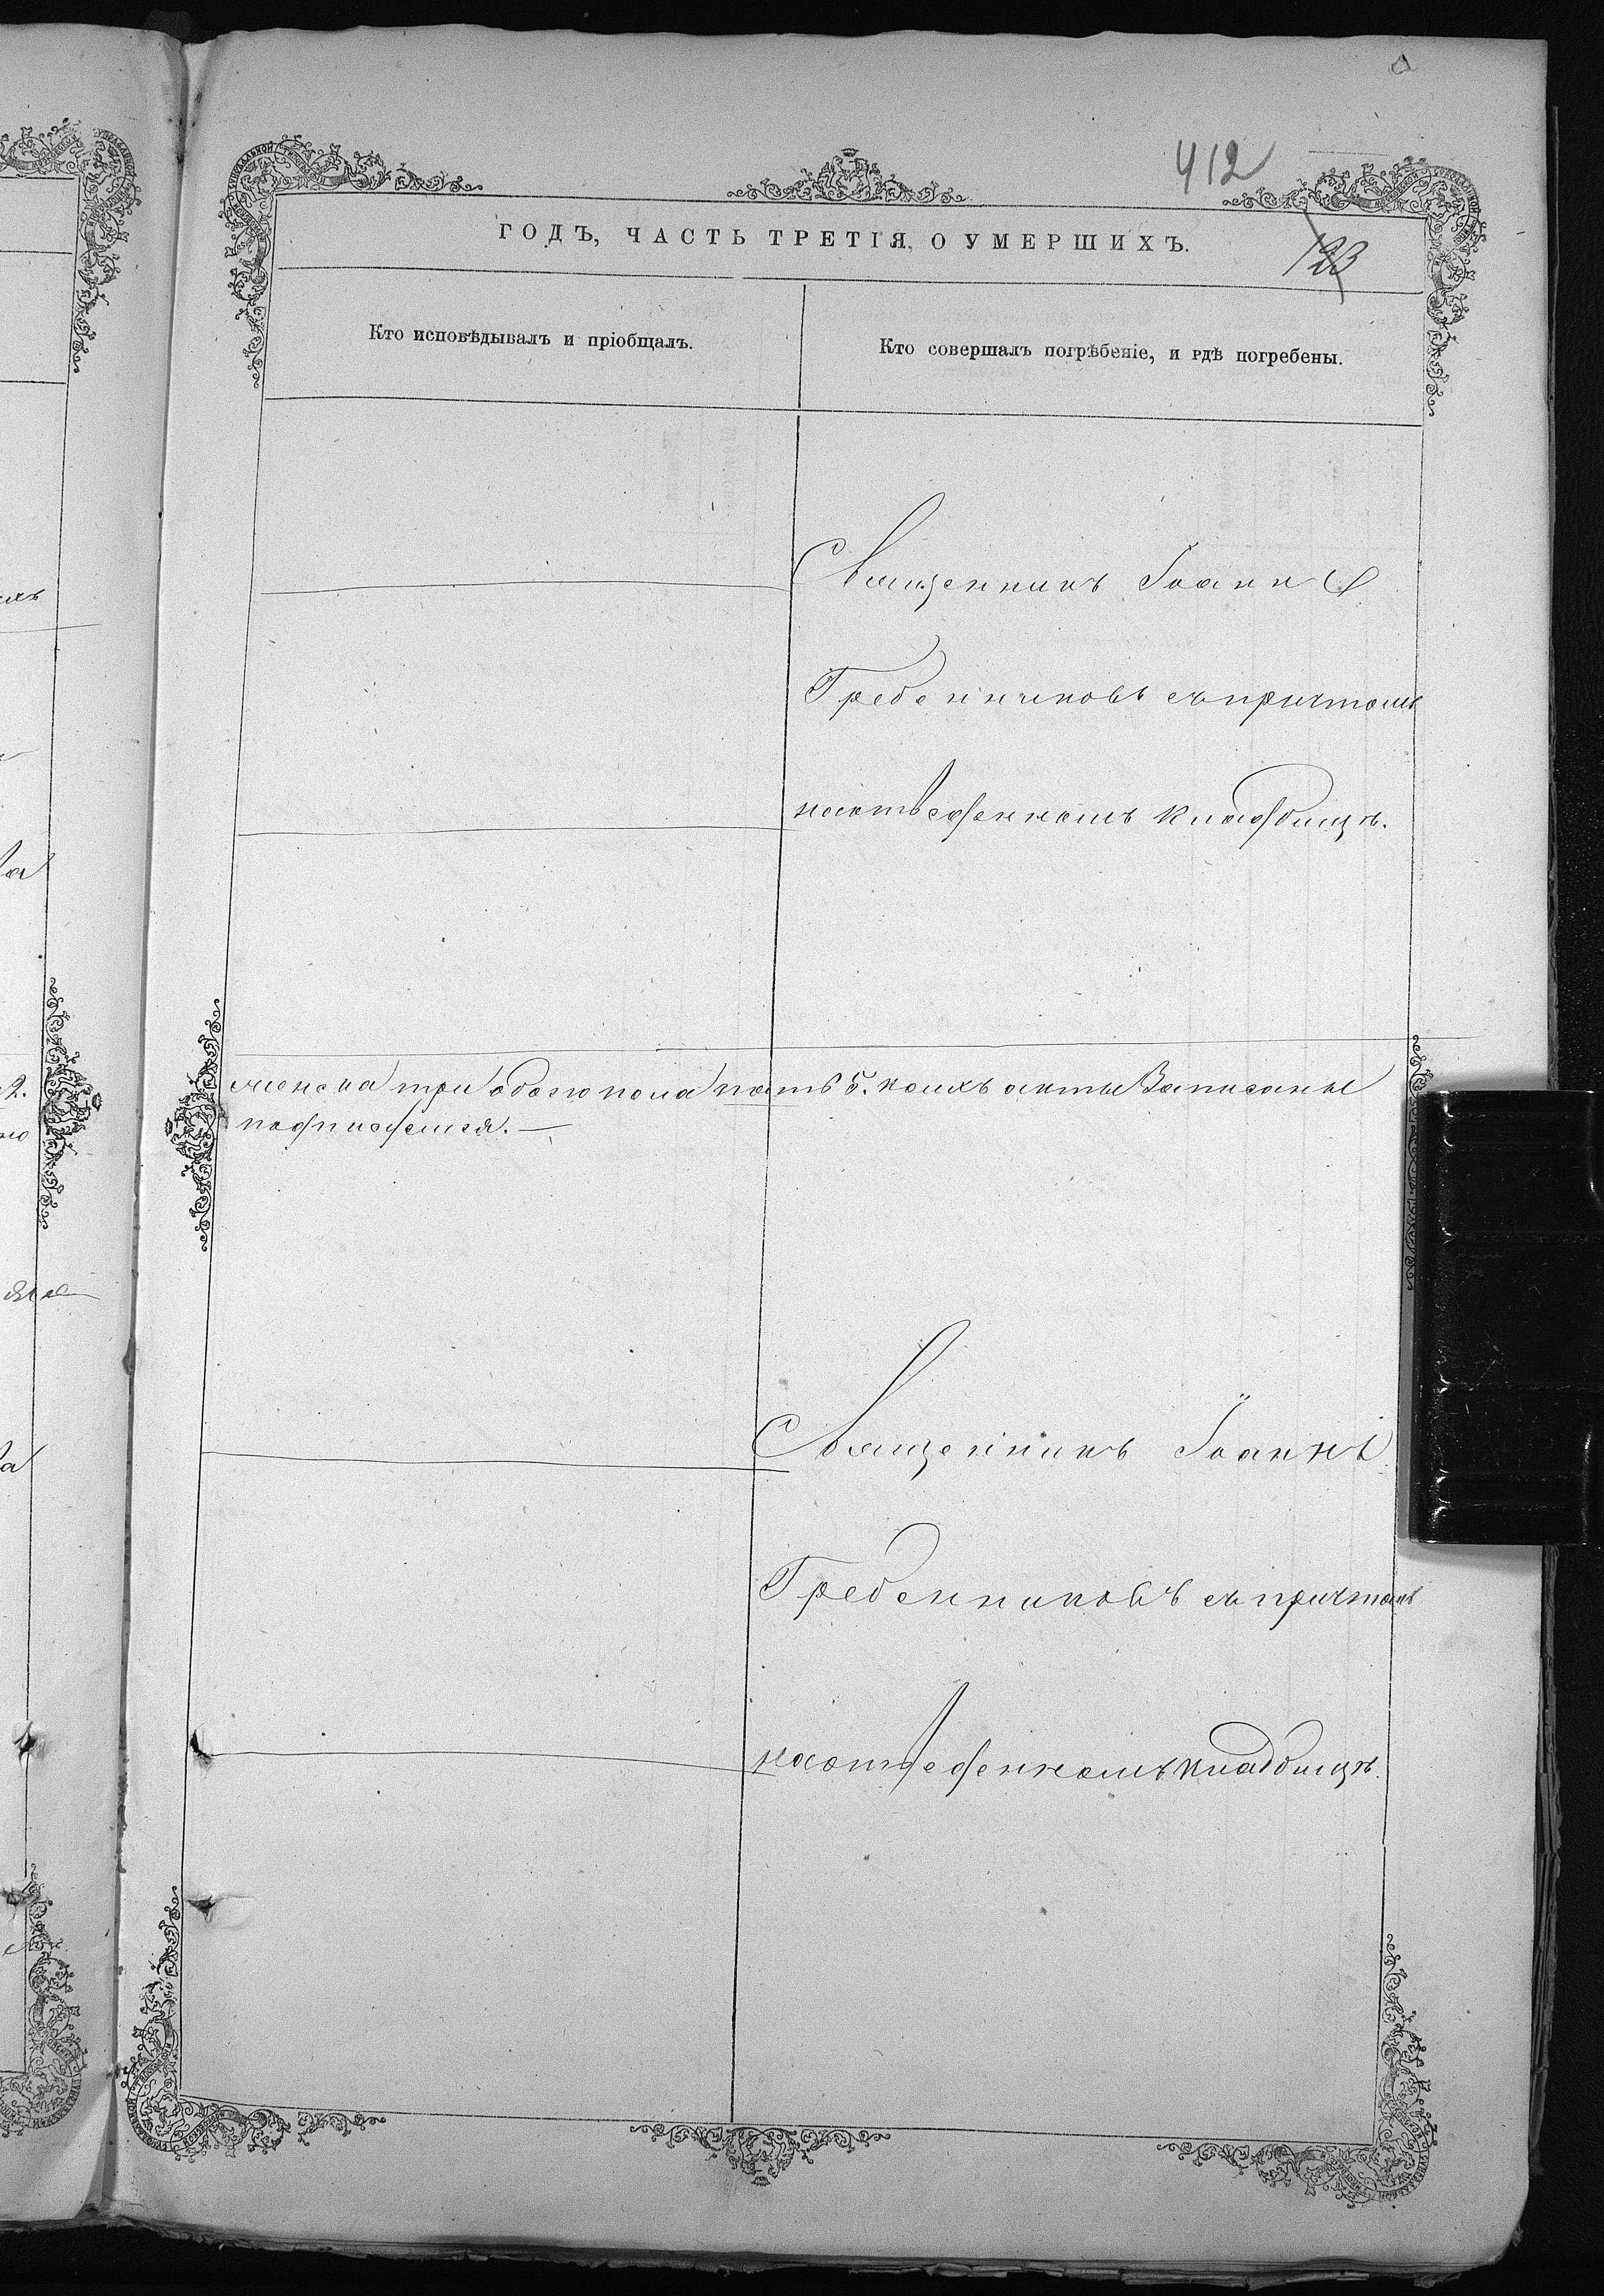 412
ГОДЪ, ЧАСТЬ ТРЕТІЯ, О УМЕРШИХЪ.
123
Кто исповѣдывалъ и пріобщалъ.
Кто совершалъ погрѣбеніе, и гдѣ погребены.
Священникъ Іоаннъ
Гребенниковъ съ причтомъ
на отведенномъ кладбищѣ.
женска три обоего пола пять 5. коихъ акты записаны
подписуемся. —
Священникъ Іоаннъ
Гребенниковъ съ причтомъ
на отведенномъ кладбищѣ.